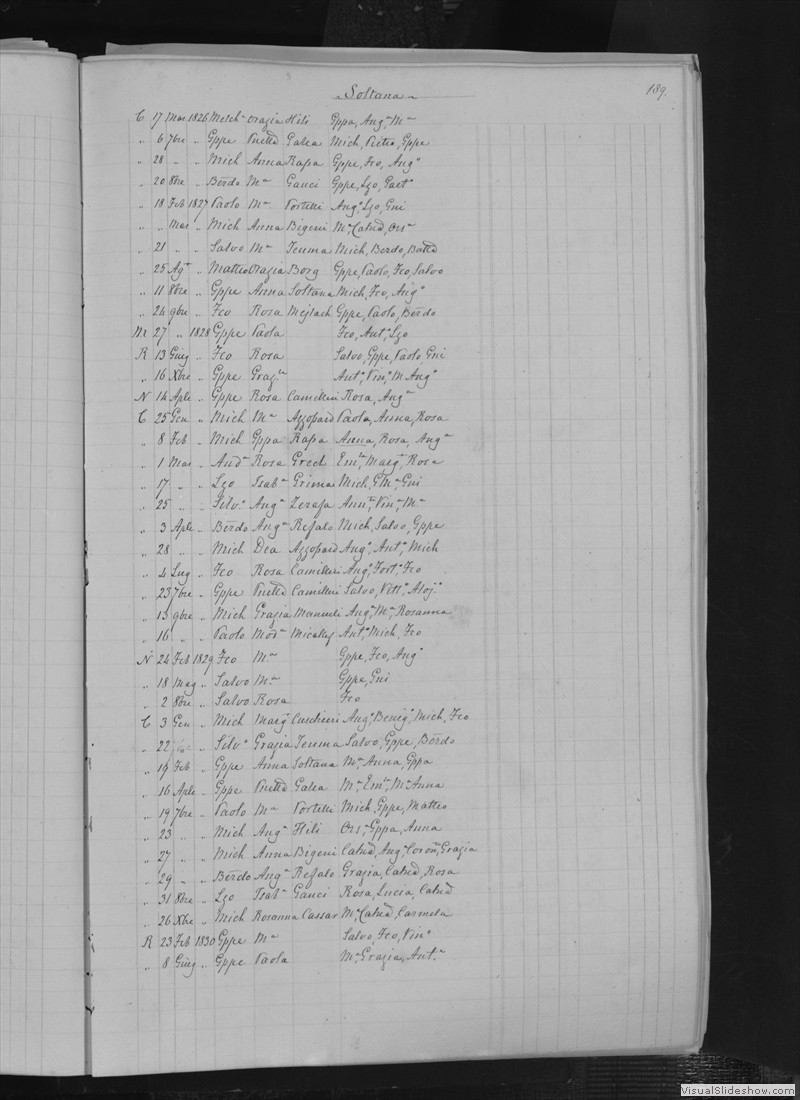 Soltana
189.
C 17 Mar 1826 Melch.r Orazia Hili Gppa, Ang.a M.a
" 6 7bre " Gppe Nuttd Galea Mich, Pietro, Gppe
" 28 " " Mich Anna Rapa Gppe, Fco, Ang.o
" 20 8bre " Berdo M.a Gauci Gppe, Lzo, Gaet.o
" 18 Feb 1827 Paolo M.a Portelli Ang.o, Lzo, Gni
" " Mar " Mich Anna Bigeni M.a, Catnd, Ors.a
" 21 " " Salvo M.a Teuma Mich, Berdo, Battd
" 25 Ag.t " Matteo Orazia Borg Gppe, Paolo, Fco, Salvo
" 11 8bre " Gppe Anna Soltana Mich, Fco, Ang.o
" 24 9bre " Fco Rosa Mejlach Gppe, Paolo, Berdo
Nr 27 " 1828 Gppe Paola Fco, Ant.o, Lzo
R 13 Giug " Fco Rosa Salvo, Gppe, Paolo, Gni
" 16 Xbre " Gppe Graz.a Ant.o, Vin.o, M. Ang.o
N 14 Aple " Gppe Rosa Camilleri Rosa, Ang.a
C 25 Gen " Mich M.a Azzopard Paola, Anna, Rosa
" 8 Feb " Mich Gppa Rapa Anna, Rosa, Ang.a
" 1 Mar " And.a Rosa Grech Em.la, Marg.a, Rosa
" 17 " " Lzo Isab.a Grima Mich, G.M.a Gni
" 25 " " Silv.o Ang.a Zerafa Ann.ta, Vin.a, M.a
" 3 Aple " Berdo Ang.a Refalo Mich, Salvo, Gppe
" 28 " " Mich Dea Azzopard Ang.o, Ant.o, Mich
" 4 Lug " Fco Rosa Camilleri Ang.o, Fort.o, Fco
" 23 7bre " Gppe Nuttd Camilleri Salvo, Vitt.o, Aloj.o
" 13 9bre " Mich Grazia Mamueli Ang.a, M.a, Rosanna
" 16 " " Paolo Mod.a Micallef Ant.o, Mich, Fco
N 24 Feb 1829 Fco M.a Gppe, Fco, Ang.o
" 18 Mag " Salvo M.a Gppe, Gni
" 2 8bre " Salvo Rosa Fco
C 3 Gen " Mich Marg.a Cuschieri Ang.o, Benig.o, Mich, Fco
" 22 " " Silv.o Grazia Teuma Salvo, Gppe, Berdo
" 19 Feb " Gppe Anna Soltana M.a Anna, Gppa
" 16 Aple " Gppe Nuttd Galea M.a, Em.la, M.a Anna
" 19 7bre " Paolo M.a Portelli Mich, Gppe, Matteo
" 23 " " Mich Ang.a Hili Ors.a, Gppa, Anna
" 27 " " Mich Anna Bigeni Catnd, Ang.a, Coron.a, Grazia
" 29 " " Berdo Ang.a Refalo Grazia, Catnd, Rosa
" 31 8bre " Lzo Isab.a Gauci Rosa, Lucia, Catnd
" 26 Xbre " Mich Rosanna Cassar M.a, Catnd, Carmela
R 23 Feb 1830 Gppe M.a Salvo, Fco, Vin.o
" 8 Giug " Gppe Paola M.a Grazia, Ant.a
VisualSlideshow.com